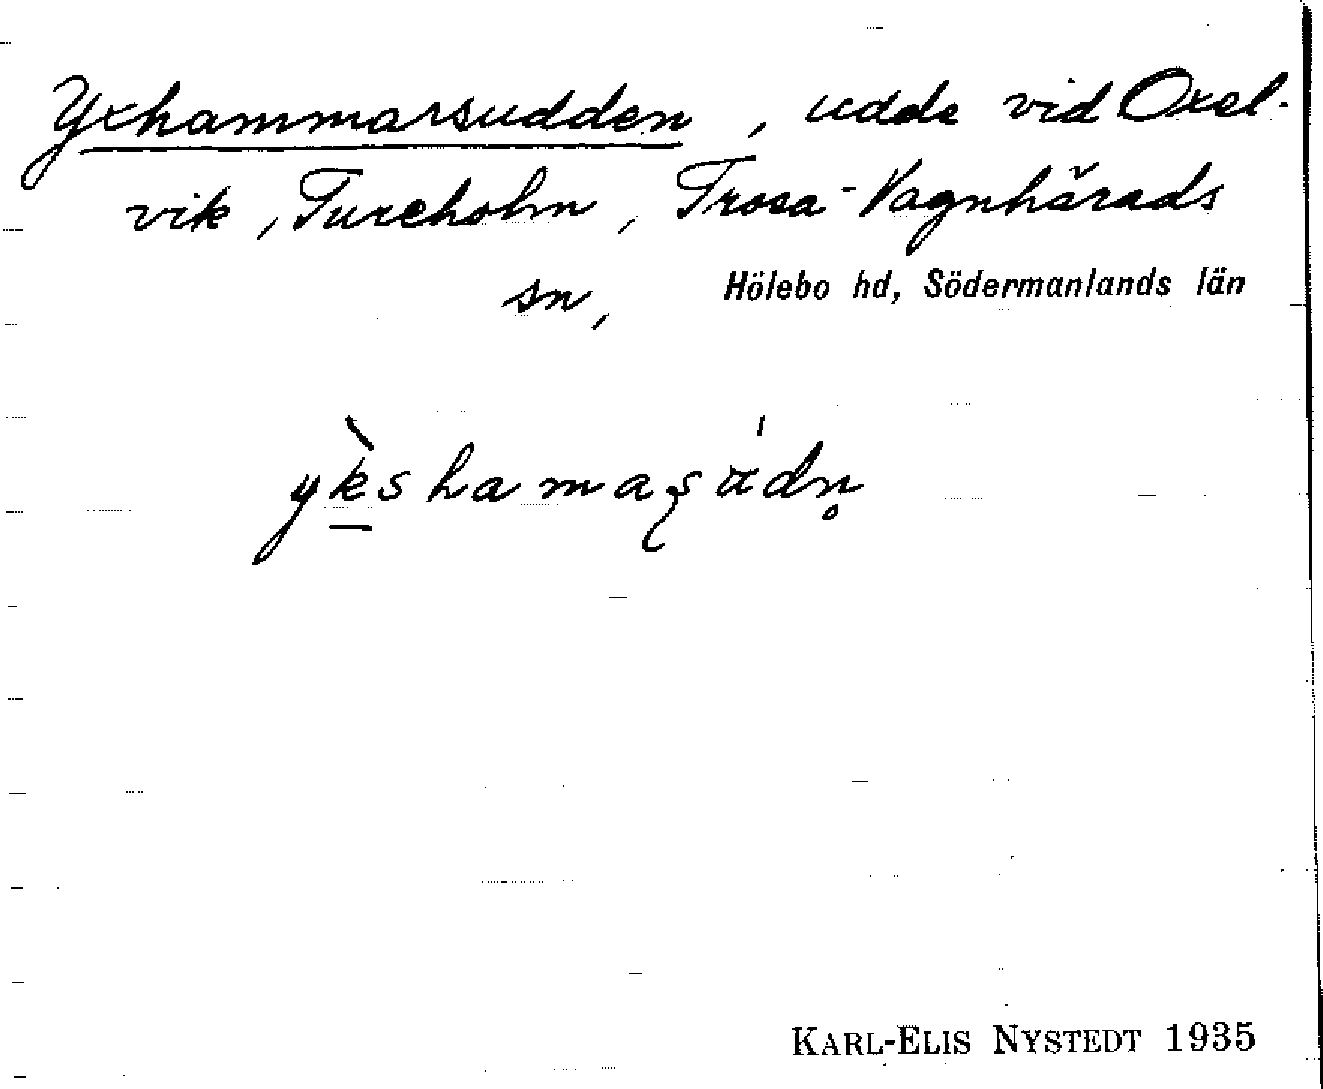 Yxhammarsudden, udde vid Oxel-
vik, Tureholm, Trosa-Vagnhärads
sn, Hölebo hd, Södermanlands län
ỳ̠kshamaʂúdn̥
KARL-ELIS NYSTEDT 1935